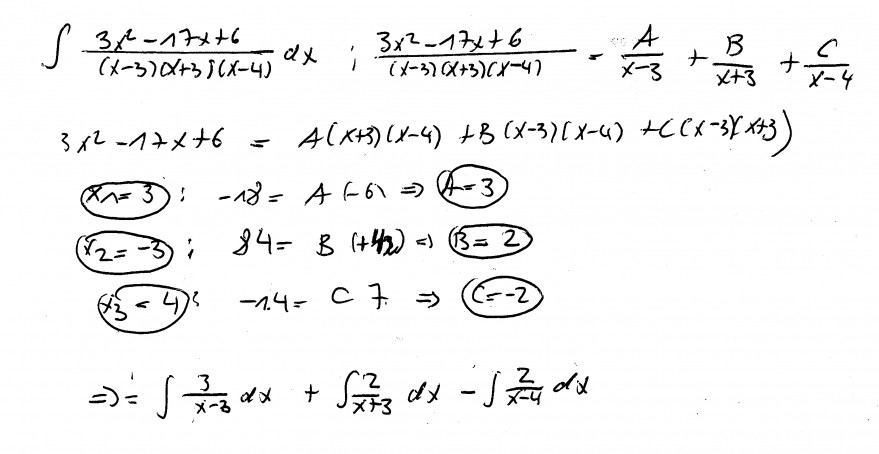 ∫ (3x² - 17x + 6)/((x-3)(x+3)(x-4)) dx ; (3x² - 17x + 6)/((x-3)(x+3)(x-4)) = A/(x-3) + B/(x+3) + C/(x-4)
3x² - 17x + 6 = A(x+3)(x-4) + B(x-3)(x-4) + C(x-3)(x+3)
x₁ = 3 : -18 = A(-6) ⇒ A = 3
x₂ = -3 : 84 = B(+42) ⇒ B = 2
x₃ = 4 : -14 = C 7 ⇒ C = -2
⇒ = ∫ 3/(x-3) dx + ∫ 2/(x+3) dx - ∫ 2/(x-4) dx